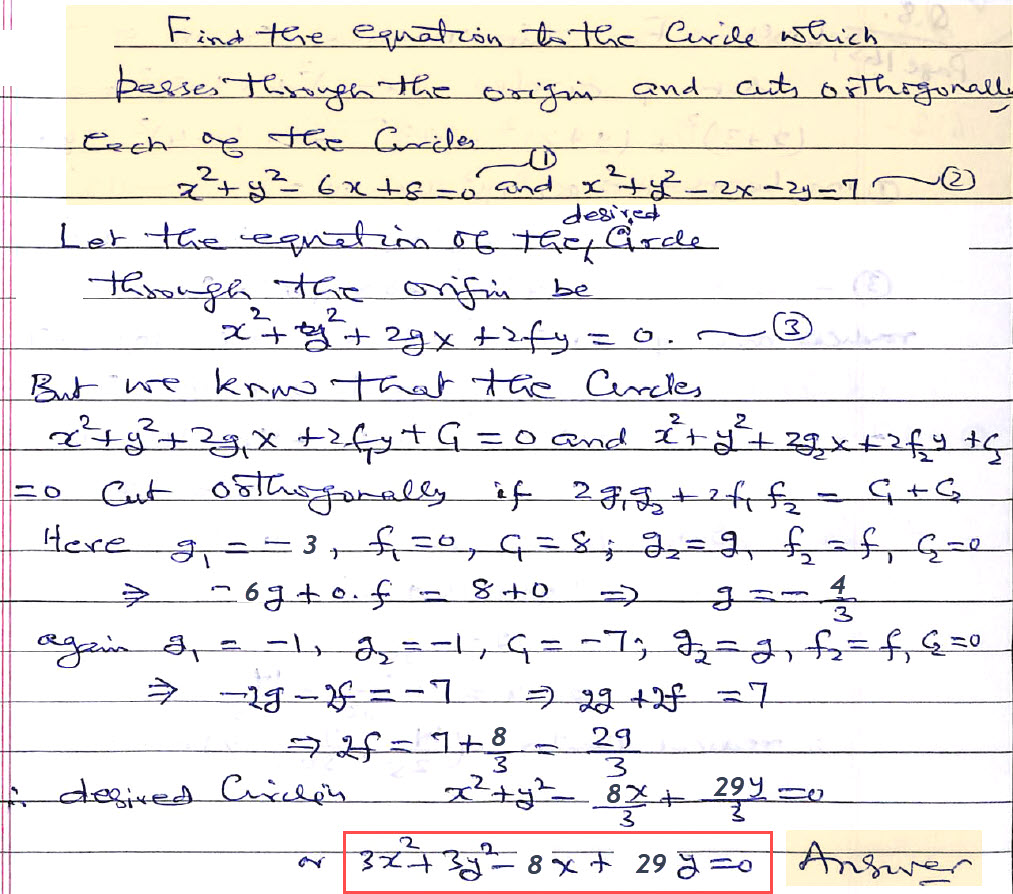 Find the equation to the Circle which
passes through the origin and cuts orthogonally
each of the Circles
x²+y²-6x+8=0 —① and x²+y²-2x-2y=7 —②
Let the equation of the desired Circle
through the origin be
x²+y²+2gx+2fy=0. —③
But we know that the Circles
x²+y²+2g₁x+2f₁y+C₁=0 and x²+y²+2g₂x+2f₂y+C₂
=0 Cut orthogonally if 2g₁g₂+2f₁f₂=C₁+C₂
Here g₁=-3, f₁=0, C₁=8; g₂=g, f₂=f, C₂=0
⇒ -6g+0.f = 8+0 ⇒ g=-4/3
again g₁=-1, g₂=-1, C₁=-7; g₂=g, f₂=f, C₂=0
⇒ -2g-2f=-7 ⇒ 2g+2f=7
⇒ 2f=7+8/3=29/3
∴ desired Circle is x²+y²-8x/3+29y/3=0
or 3x²+3y²-8x+29y=0 Answer